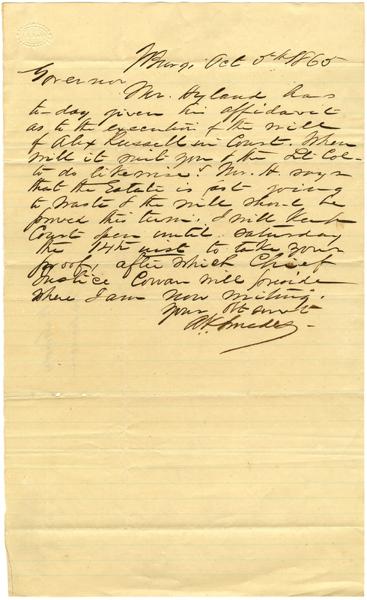 Vburg, Oct 5th 1865
Governor
Mr. Hyland has
to-day given his affidavit
as to the execution of the will
of Alex Russell in Court. When
will it suit you & the Lt Col-
to do likewise? Mr. H. says
that the Estate is fast going
to waste & the will should be
proved this term. I will keep
Court open until Saturday
the 14th inst to take your
proof, after which Chief
Justice Cowan will preside
where I am now writing.
Your Obt Servt
A K Smedes-